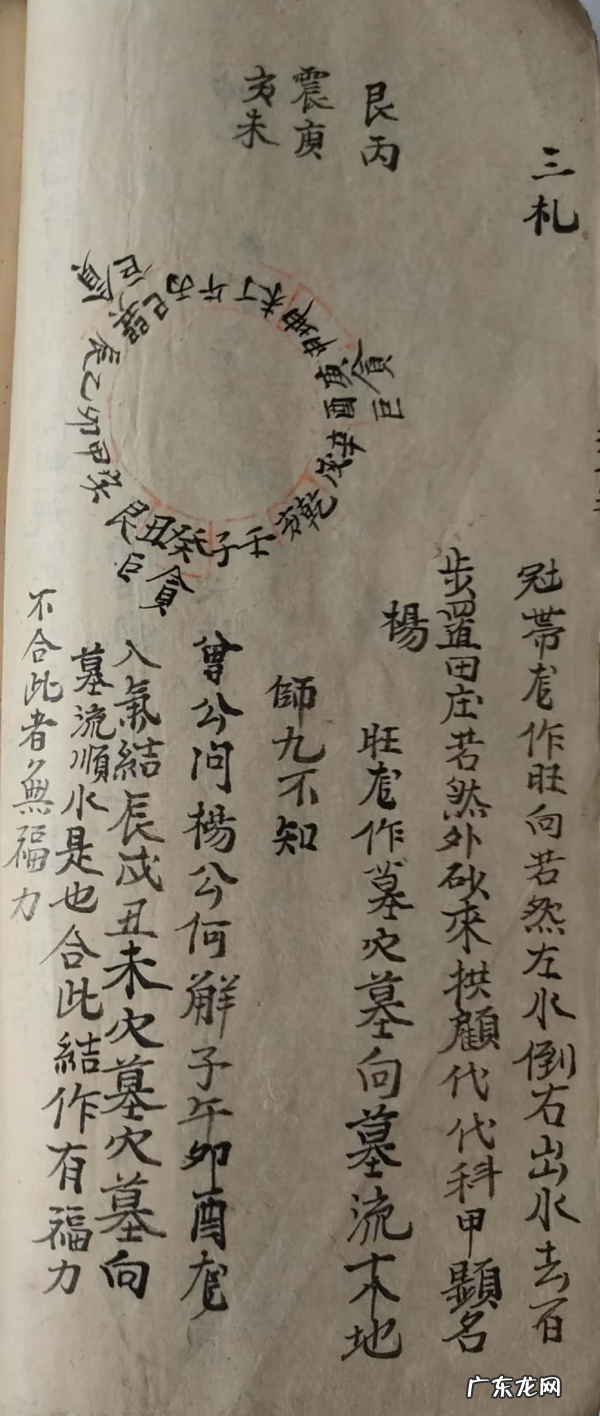 三札
艮丙
震庚
亥未
巨貪
巽巳丙午丁未坤申庚酉辛戌乾亥壬子癸丑艮寅甲卯乙辰
貪巨
巨貪
冠帯龙作旺向若然左水倒右出水去百
步置田庄若然外砂來拱顧代代科甲顯名
楊
旺龙作墓穴墓向墓流木地
師九不知
曾公问楊公何解子午卯酉龙
入氣結辰戌丑未穴墓穴墓向
墓流順水是也合此結作有福力
不合此者無福力
广东龙网